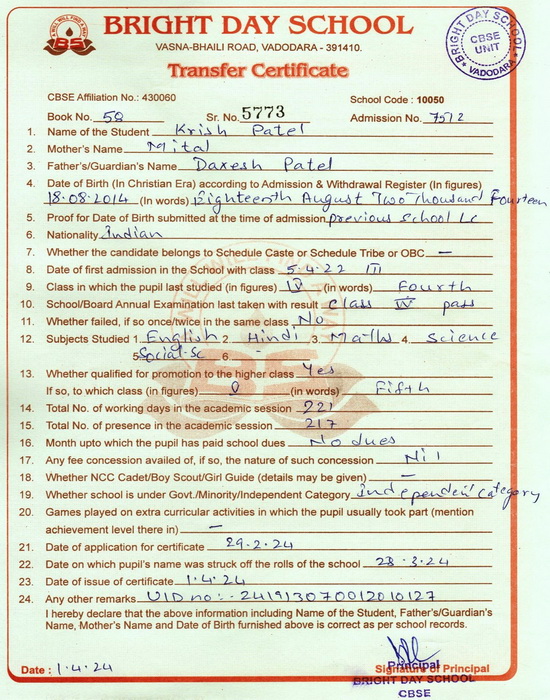 BRIGHT DAY SCHOOL
VASNA-BHAILI ROAD, VADODARA - 391410.
BRIGHT DAY SCHOOL
CBSE
UNIT
VADODARA
Transfer Certificate
CBSE Affiliation No.: 430060 School Code : 10050
Book No. 58 Sr. No. 5773 Admission No. 7512
1. Name of the Student Krish Patel
2. Mother's Name Mital
3. Father's/Guardian's Name Daxesh Patel
4. Date of Birth (In Christian Era) according to Admission & Withdrawal Register (In figures)
18.08.2014 (In words) Eighteenth August Two thousand Fourteen
5. Proof for Date of Birth submitted at the time of admission previous school LC
6. Nationality Indian
7. Whether the candidate belongs to Schedule Caste or Schedule Tribe or OBC —
8. Date of first admission in the School with class 5.4.22 III
9. Class in which the pupil last studied (in figures) IV (in words) Fourth
10. School/Board Annual Examination last taken with result class IV pass
11. Whether failed, if so once/twice in the same class No
12. Subjects Studied 1. English 2. Hindi 3. Maths 4. Science
5 Social.Sc 6. -
13. Whether qualified for promotion to the higher class Yes
If so, to which class (in figures) (in words) Fifth
14. Total No. of working days in the academic session 221
15. Total No. of presence in the academic session 217
16. Month upto which the pupil has paid school dues No dues
17. Any fee concession availed of, if so, the nature of such concession Nil
18. Whether NCC Cadet/Boy Scout/Girl Guide (details may be given) —
19. Whether school is under Govt./Minority/Independent Category Independent category
20. Games played on extra curricular activities in which the pupil usually took part (mention
achievement level there in) —
21. Date of application for certificate 29.2.24
22. Date on which pupil's name was struck off the rolls of the school 28.3.24
23. Date of issue of certificate 1.4.24
24. Any other remarks UID no:- 241913070012010127
I hereby declare that the above information including Name of the Student, Father's/Guardian's
Name, Mother's Name and Date of Birth furnished above is correct as per school records.
Date : 1.4.24 Signature of Principal
Principal
BRIGHT DAY SCHOOL
CBSE